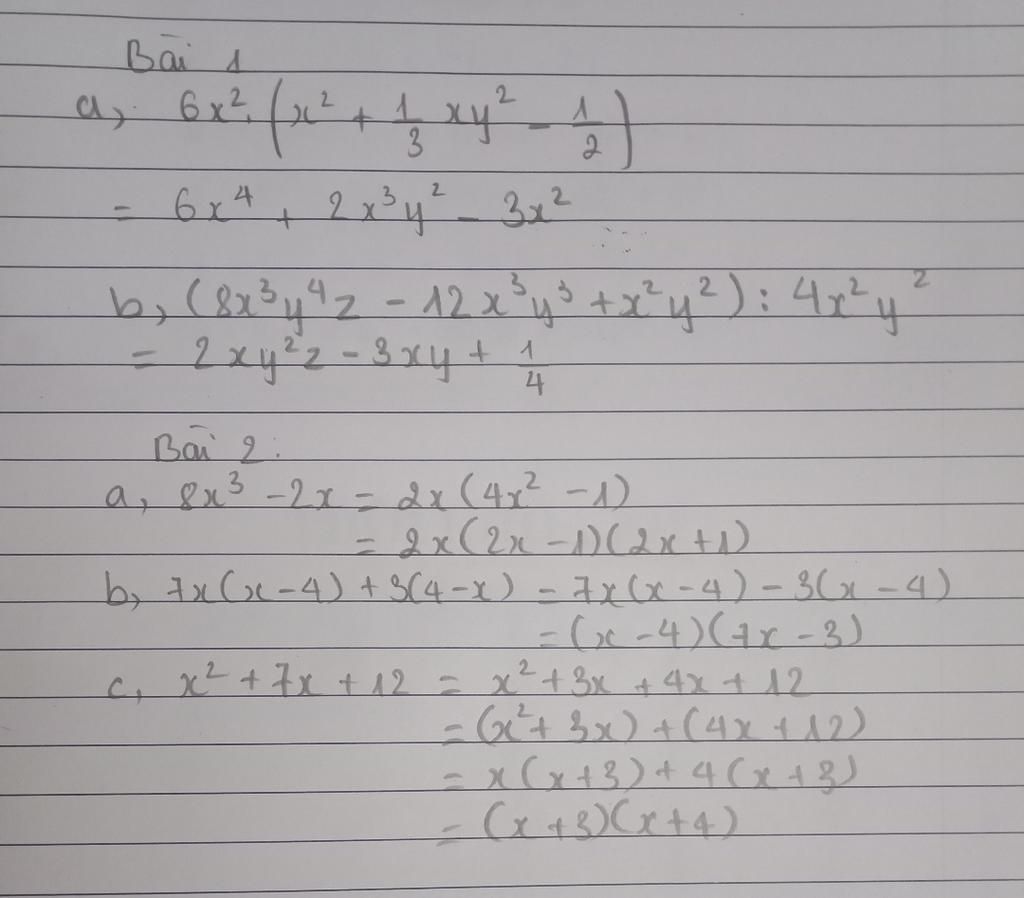 Bài 1
a, 6x². (x² + 1/3 xy² - 1/2)
= 6x⁴ + 2x³y² - 3x²
b, (8x³y⁴z - 12x³y³ + x²y²) : 4x²y²
= 2xy²z - 3xy + 1/4
Bài 2:
a, 8x³ - 2x = 2x(4x² - 1)
= 2x(2x - 1)(2x + 1)
b, 7x(x - 4) + 3(4 - x) = 7x(x - 4) - 3(x - 4)
= (x - 4)(7x - 3)
c, x² + 7x + 12 = x² + 3x + 4x + 12
= (x² + 3x) + (4x + 12)
= x(x + 3) + 4(x + 3)
= (x + 3)(x + 4)